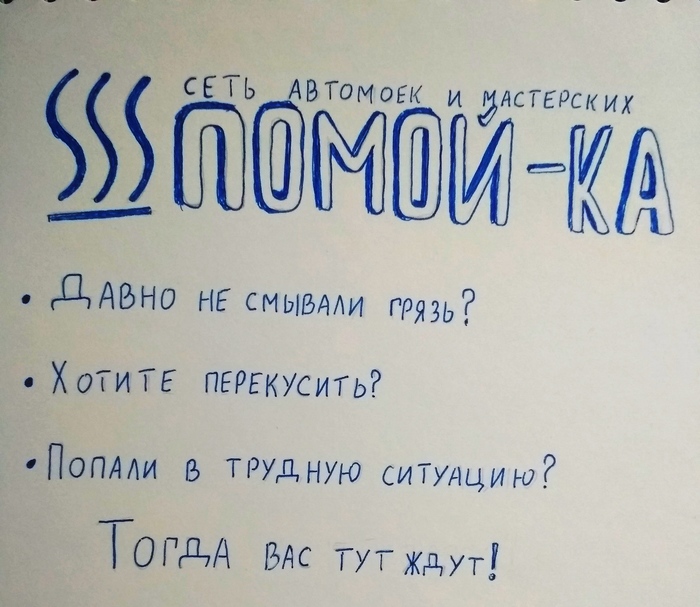 СЕТЬ АВТОМОЕК И МАСТЕРСКИХ
ПОМОЙ-КА
• ДАВНО НЕ СМЫВАЛИ ГРЯЗЬ?
• ХОТИТЕ ПЕРЕКУСИТЬ?
• ПОПАЛИ В ТРУДНУЮ СИТУАЦИЮ?
ТОГДА ВАС ТУТ ЖДУТ!